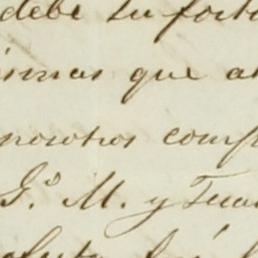 debe su fort
ismas que a
nosotros comp
G.º M. y Tua